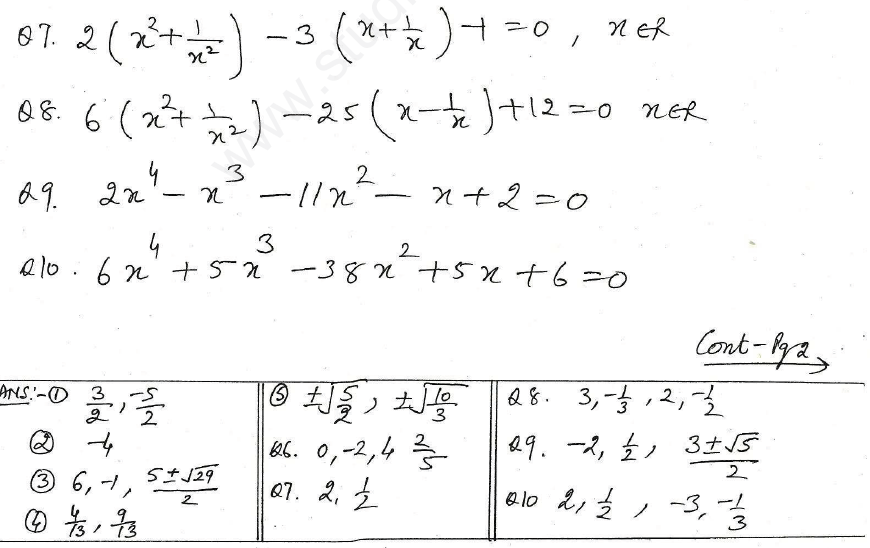 Q7. 2(x²+1/x²) -3(x+1/x)-1=0, x∈R
Q8. 6(x²+1/x²) -25(x-1/x)+12=0 x∈R
Q9. 2x⁴-x³-11x²-x+2=0
Q10. 6x⁴+5x³-38x²+5x+6=0
Cont-Pg2
ANS:-① 3/2, -5/2
② -4
③ 6, -1, (5±√29)/2
④ 4/13, 9/13
⑤ ±√(5/2), ±√(10/3)
Q6. 0, -2, 4 2/5
Q7. 2, 1/2
Q8. 3, -1/3, 2, -1/2
Q9. -2, 1/2, (3±√5)/2
Q10 2, 1/2, -3, -1/3